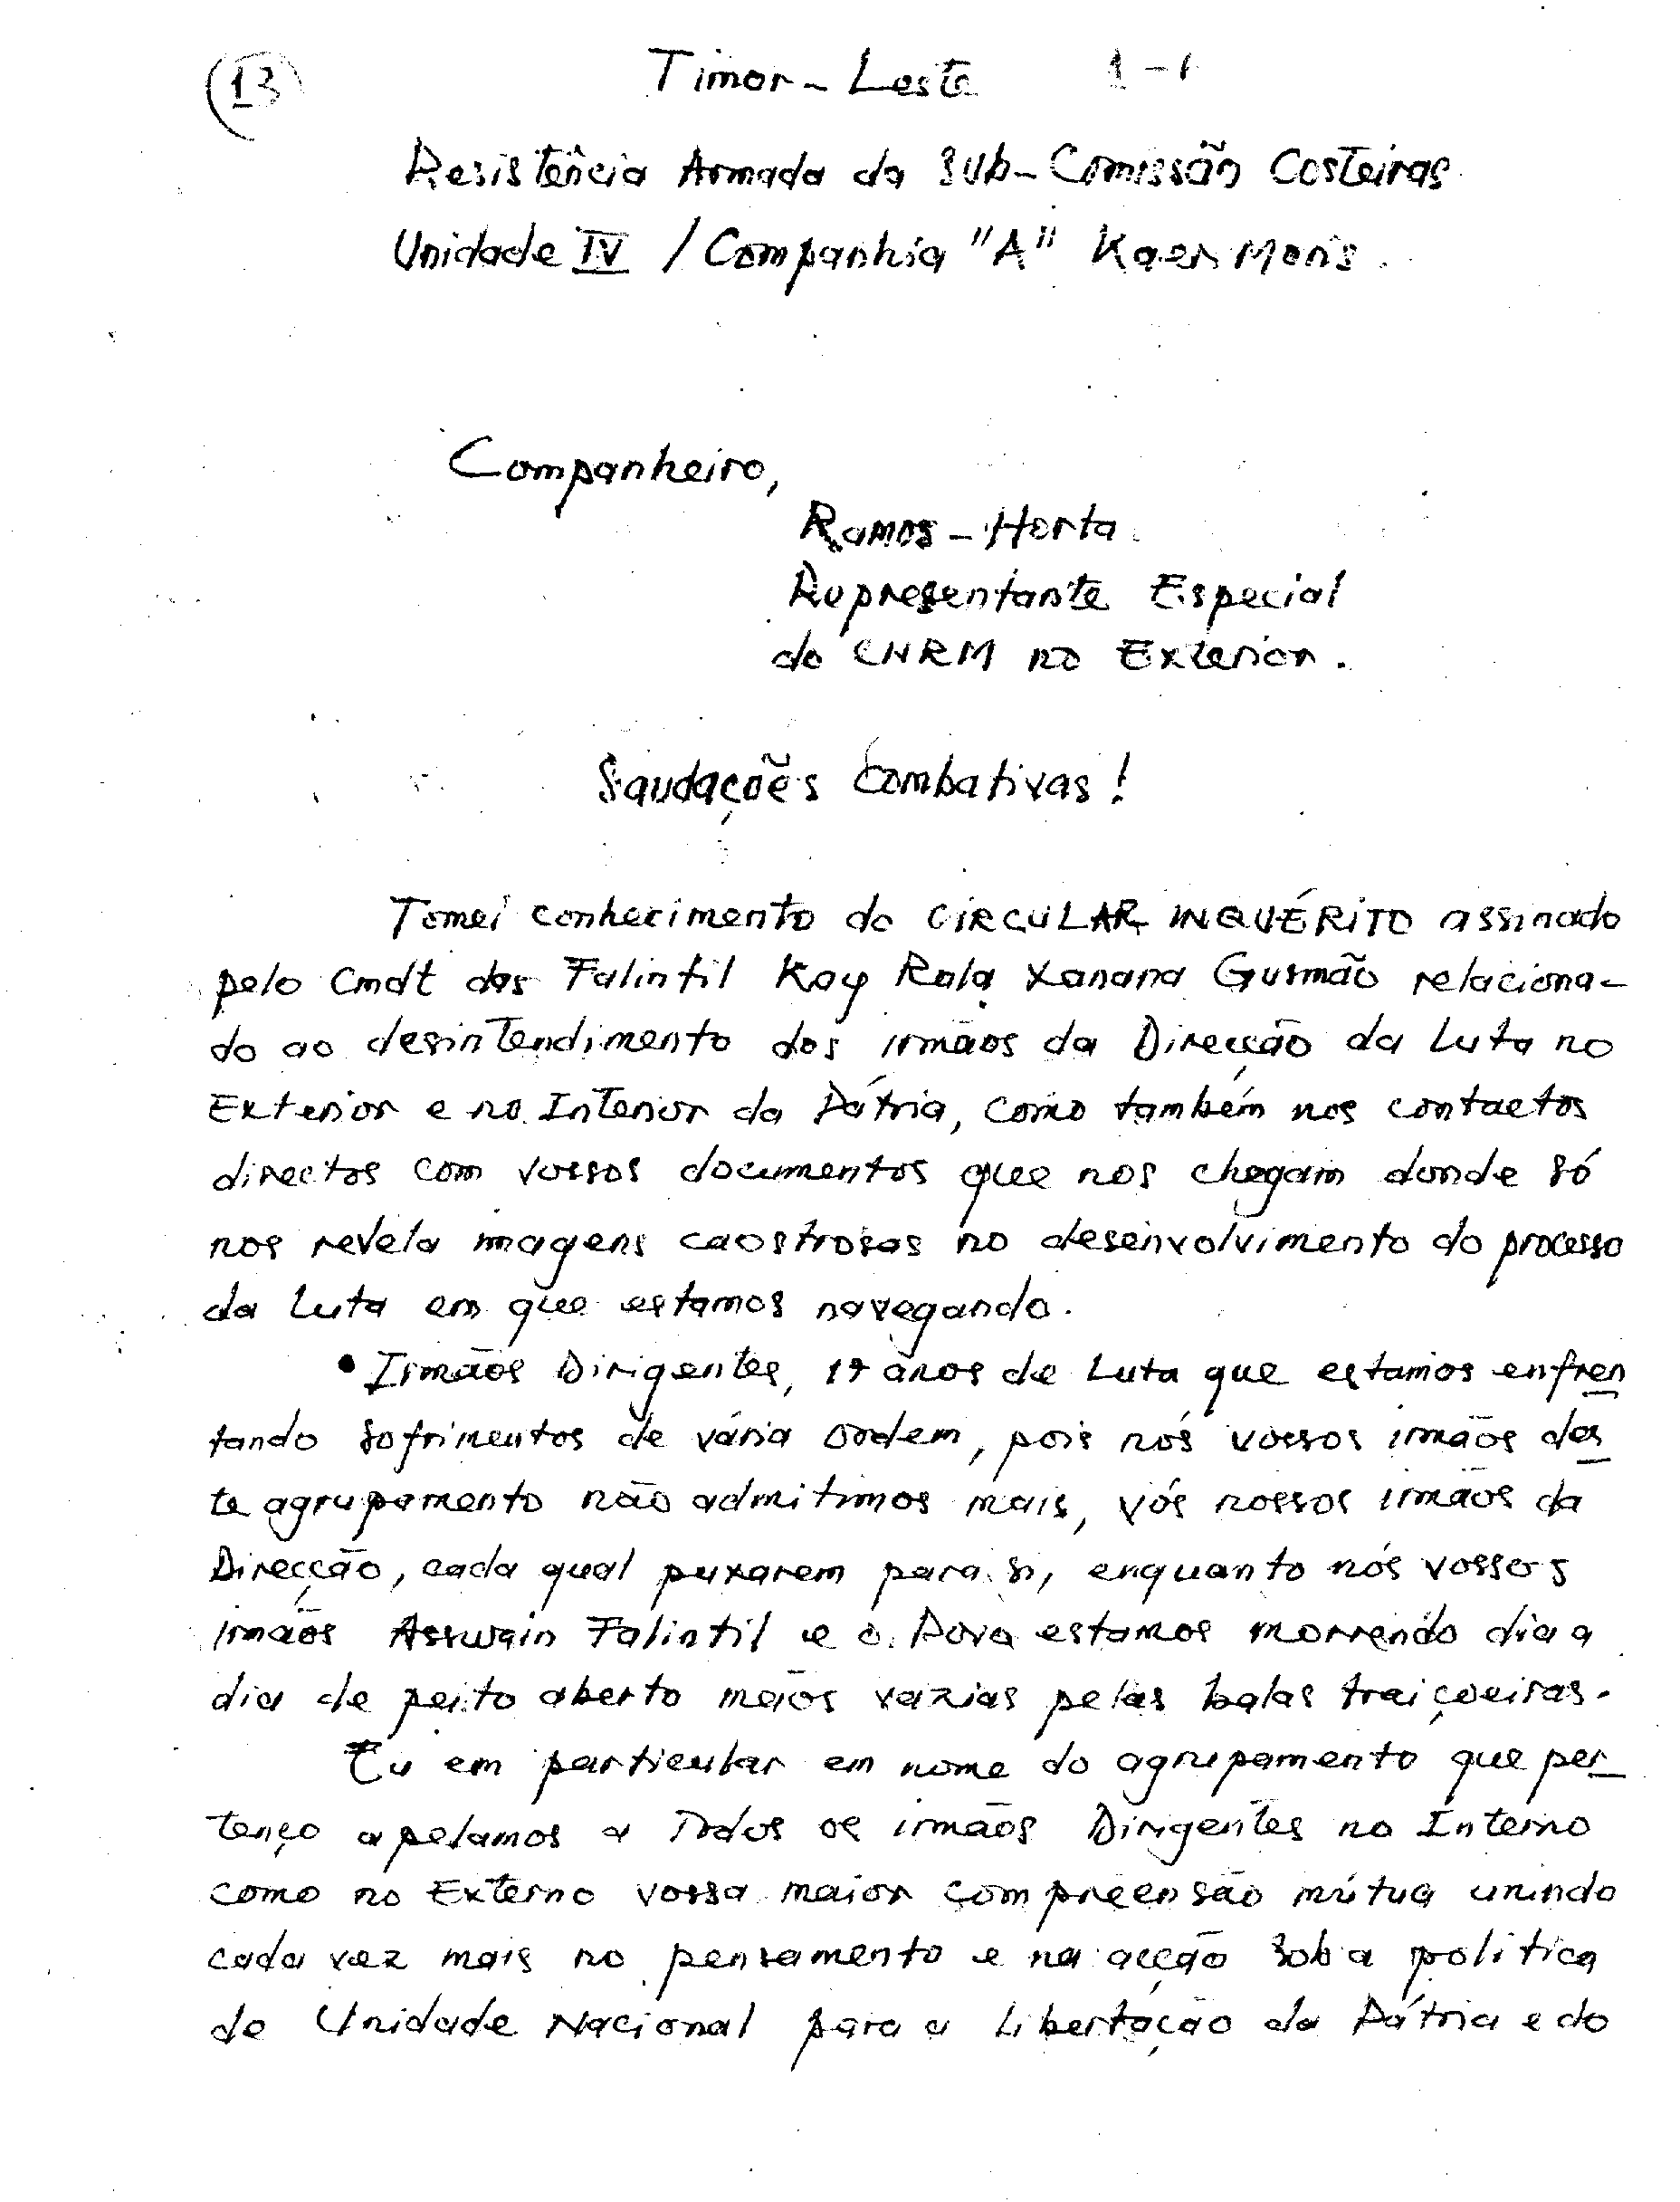 (13)
Timor-Leste 1-1
Resistência Armada da Sub-Comissão Costeiras
Unidade IV / Companhia "A" Kaer Moris.
Companheiro,
Ramos-Horta
Representante Especial
do CNRM no Exterior.
Saudações Combativas!
Tomei conhecimento do CIRCULAR INQUÉRITO assinado
pelo Cmdt das Falintil Kay Rala Xanana Gusmão relaciona-
do ao desintendimento dos irmãos da Direcção da Luta no
Exterior e no Interior da Pátria, como também nos contactos
directos com vossos documentos que nos chegam donde só
nos revela imagens caostrosas no desenvolvimento do processo
da Luta em que estamos navegando.
• Irmãos Dirigentes, 19 anos de Luta que estamos enfren
tando sofrimentos de vária ordem, pois nós vossos irmãos des
te agrupamento não admitimos mais, vós nossos irmãos da
Direcção, cada qual puxarem para si, enquanto nós vossos
irmãos Asswain Falintil e o Povo estamos morrendo dia a
dia de peito aberto mãos vazias pelas balas traiçoeiras.
Eu em particular em nome do agrupamento que per
tenço apelamos a Todos os irmãos Dirigentes no Interno
como no Externo vossa maior compreensão mútua unindo
cada vez mais no pensamento e na acção sob a politica
de Unidade Nacional para a Libertação da Pátria e do